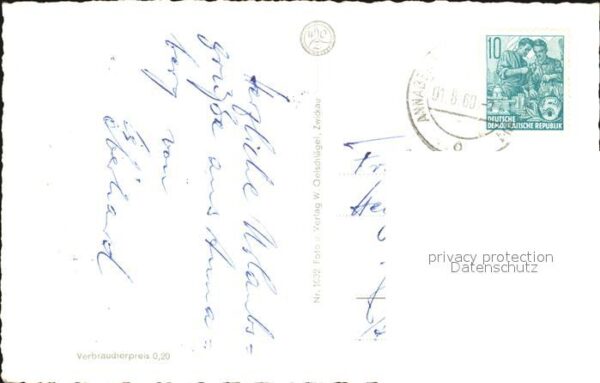 Herzliche Urlaubs=
grüße aus Anna=
berg von
Eberhard
Nr. 1632 Foto u. Verlag W. Oelschlägel, Zwickau
Verbraucherpreis 0,20
10
5
DEUTSCHE
DEMOKRATISCHE REPUBLIK
ANNABE
01.6.60
Fr
He
privacy protection
Datenschutz